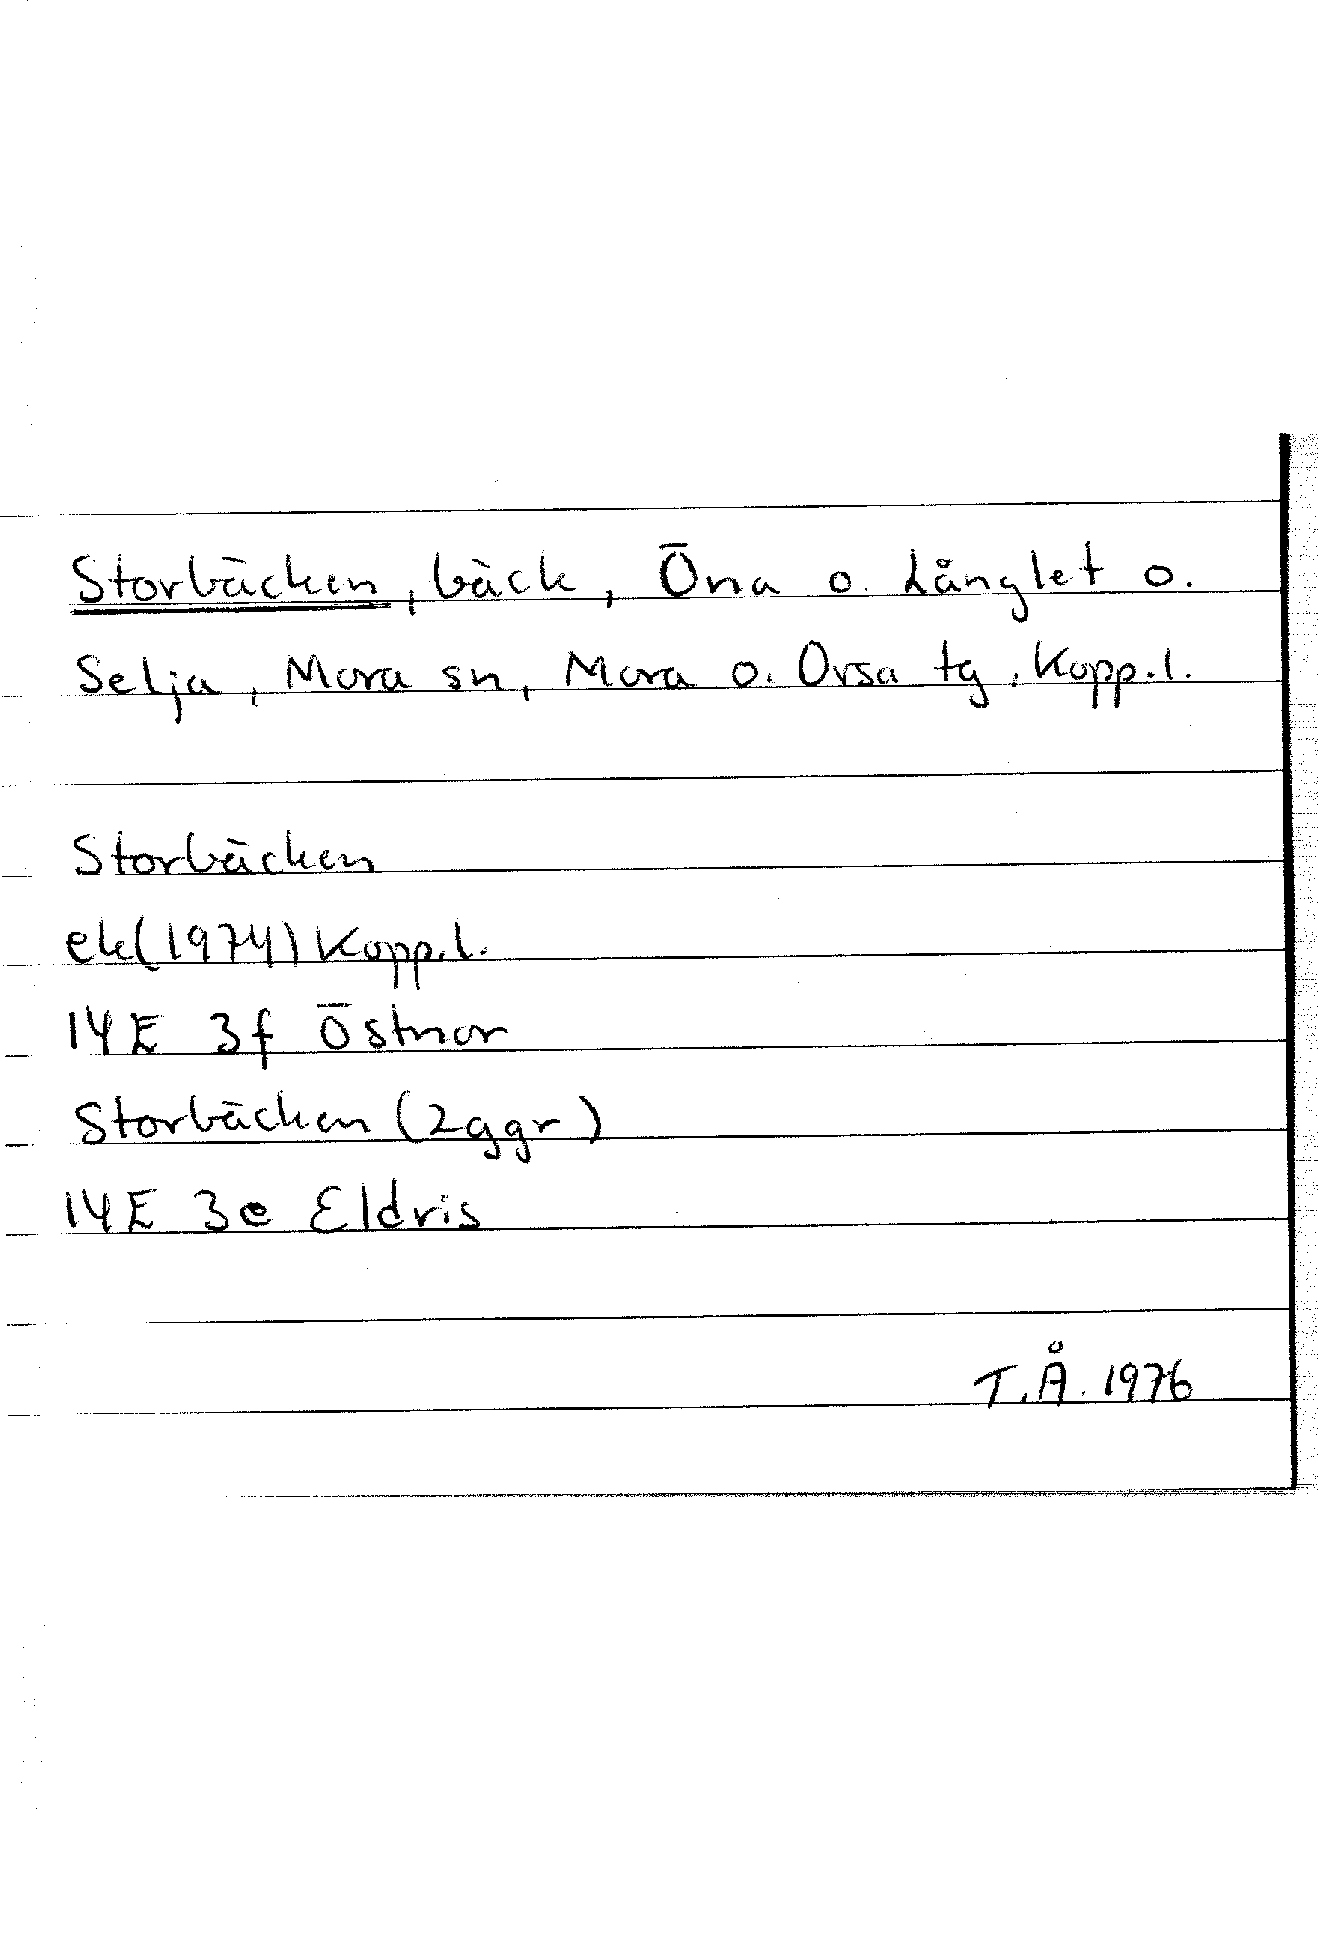 Storbäcken, bäck, Öna o. Långlet o.
Selja, Mora sn, Mora o. Orsa tg, Kopp.l.
Storbäcken
ek(1974) Kopp.l.
14E 3f Östnor
Storbäcken (2ggr)
14E 3e Eldris
T.Å. 1976